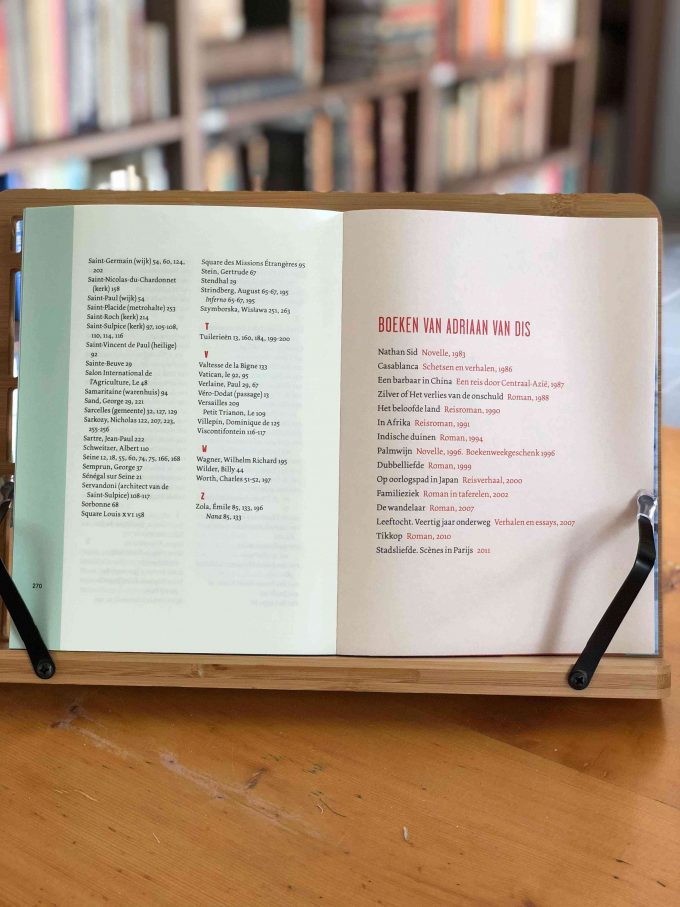 Saint-Germain (wijk) 54, 60, 124,
202
Saint-Nicolas-du-Chardonnet
(kerk) 158
Saint-Paul (wijk) 54
Saint-Placide (metrohalte) 253
Saint-Roch (kerk) 214
Saint-Sulpice (kerk) 97, 105-108,
110, 114, 116
Saint-Vincent de Paul (heilige)
92
Sainte-Beuve 29
Salon International de
l'Agriculture, Le 48
Samaritaine (warenhuis) 94
Sand, George 29, 221
Sarcelles (gemeente) 32, 127, 129
Sarkozy, Nicholas 122, 207, 223,
255-256
Sartre, Jean-Paul 222
Schweitzer, Albert 110
Seine 12, 18, 55, 60, 74, 75, 166, 168
Semprun, George 37
Sénégal sur Seine 21
Servandoni (architect van de
Saint-Sulpice) 108-117
Sorbonne 68
Square Louis XVI 158
270
Square des Missions Étrangères 95
Stein, Gertrude 67
Stendhal 29
Strindberg, August 65-67, 195
Inferno 65-67, 195
Szymborska, Wisława 251, 263
T
Tuilerieën 13, 160, 184, 199-200
V
Valtesse de la Bigne 133
Vatican, le 92, 95
Verlaine, Paul 29, 67
Véro-Dodat (passage) 13
Versailles 209
Petit Trianon, Le 109
Villepin, Dominique de 125
Viscontifontein 116-117
W
Wagner, Wilhelm Richard 195
Wilder, Billy 44
Worth, Charles 51-52, 197
Z
Zola, Émile 85, 133, 196
Nana 85, 133
BOEKEN VAN ADRIAAN VAN DIS
Nathan Sid Novelle, 1983
Casablanca Schetsen en verhalen, 1986
Een barbaar in China Een reis door Centraal-Azië, 1987
Zilver of Het verlies van de onschuld Roman, 1988
Het beloofde land Reisroman, 1990
In Afrika Reisroman, 1991
Indische duinen Roman, 1994
Palmwijn Novelle, 1996. Boekenweekgeschenk 1996
Dubbelliefde Roman, 1999
Op oorlogspad in Japan Reisverhaal, 2000
Familieziek Roman in taferelen, 2002
De wandelaar Roman, 2007
Leeftocht. Veertig jaar onderweg Verhalen en essays, 2007
Tikkop Roman, 2010
Stadsliefde. Scènes in Parijs 2011